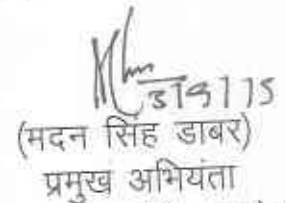 3/9/15
(मदन सिंह डाबर)
प्रमुख अभियंता